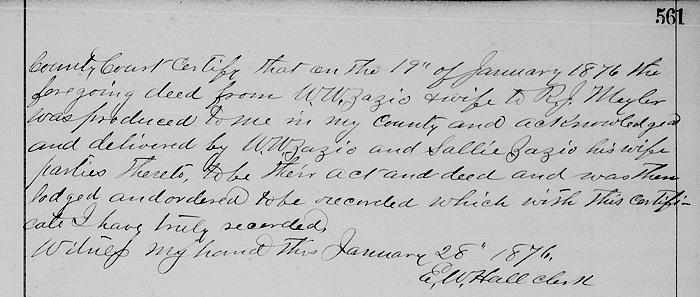 561
County Court Certify that on the 19" of January 1876 the
foregoing deed from W.W. Zazio & wife to R.J. Meyler
was produced to me in my County and acknowledged
and delivered by W.W. Zazio and Sallie Zazio his wife
parties thereto, to be their act and deed and was then
lodged and ordered to be recorded which with this certifi-
cate I have truly recorded
Witness my hand this January 28" 1876.
E.W. Hall clerk